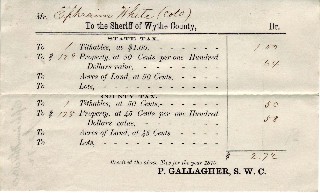 Mr. Ephraim White (Cold) Dr.
To the Sheriff of Wythe County,
STATE TAX.
To 1 Tithables, at $1.00. 1 00
To $128 Property, at 50 Cents per one Hundred Dollars value, 64
To Acres of Land, at 50 Cents,
To Lots,
COUNTY TAX.
To 1 Tithables, at 50 Cents, 50
To $128 Property, at 45 Cents per one Hundred Dollars value, 58
To Acres of Land, at 45 Cents
To Lots,
$ 2.72
Received the above Tax for the year
P. GALLAGHER, S. W. C.